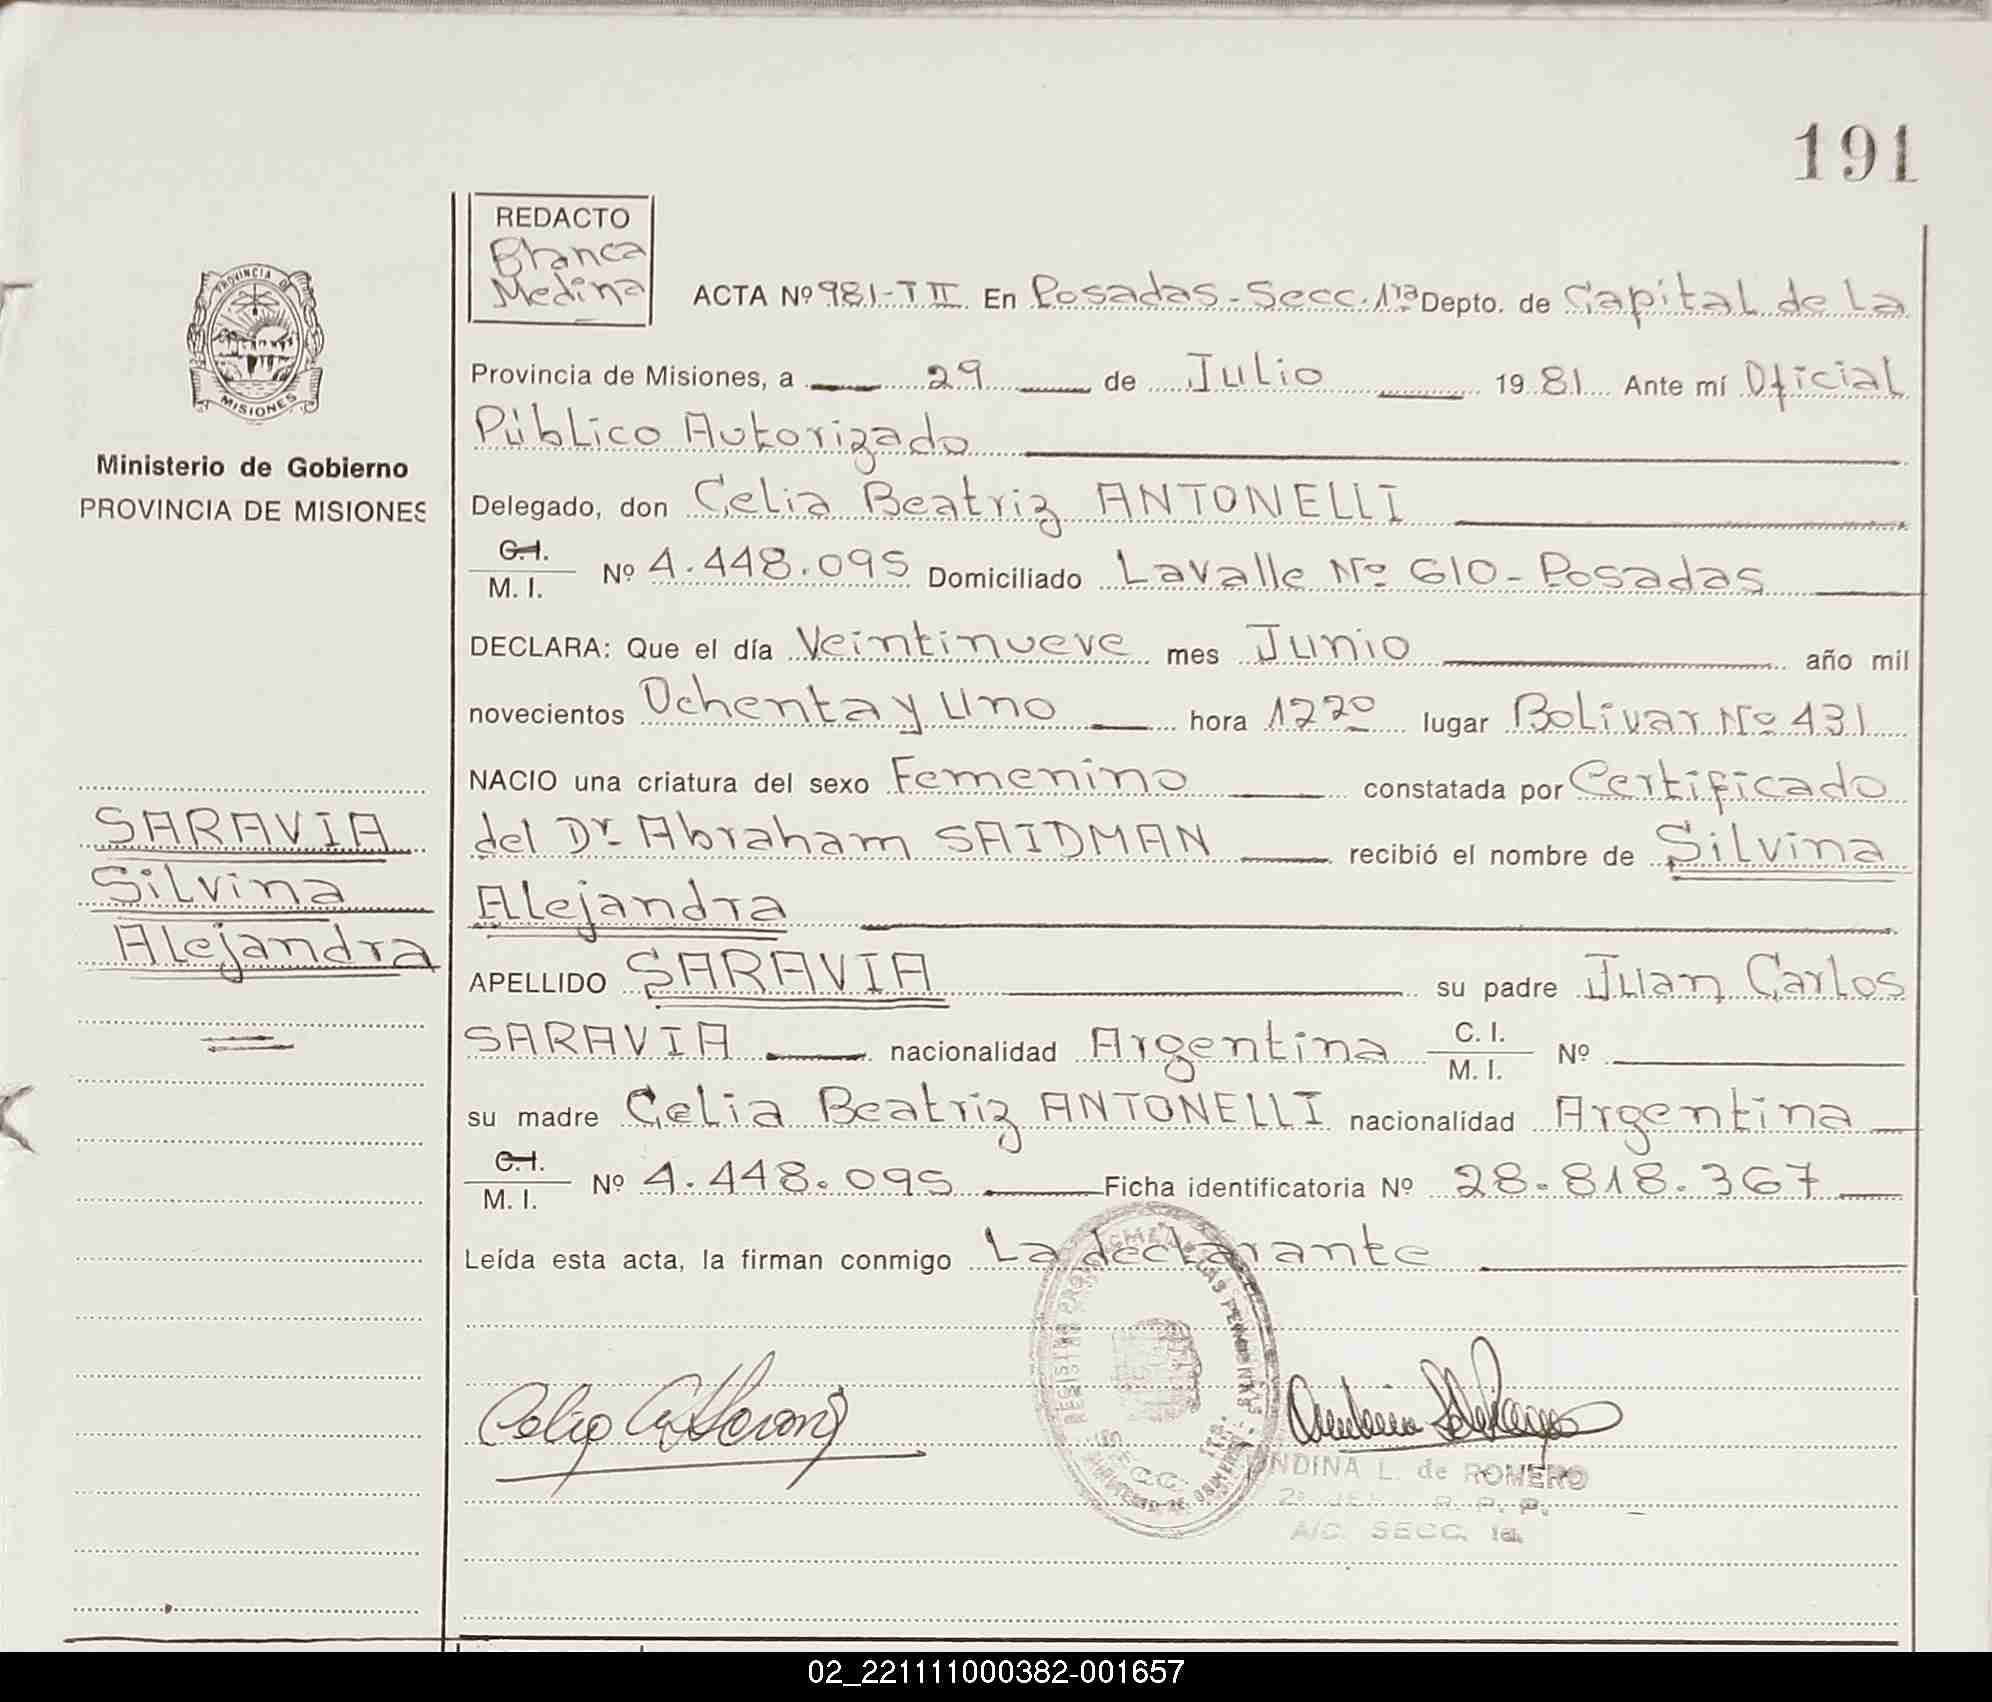 191
REDACTO
Blanca
Medina
PROVINCIA DE
MISIONES
Ministerio de Gobierno
PROVINCIA DE MISIONES
SARAVIA
Silvina
Alejandra
ACTA Nº 981-T II En Posadas-Secc.1ra Depto. de Capital de La
Provincia de Misiones, a 29 de Julio 1981 Ante mí Oficial
Público Autorizado
Delegado, don Celia Beatriz ANTONELLI
C.I.
M. I. Nº 4.448.095 Domiciliado Lavalle Nº 610-Posadas
DECLARA: Que el día Veintinueve mes Junio año mil
novecientos Ochenta y Uno hora 1220 lugar Bolivar Nº 431
NACIO una criatura del sexo Femenino constatada por Certificado
del Dr. Abraham SAIDMAN recibió el nombre de Silvina
Alejandra
APELLIDO SARAVIA su padre Juan Carlos
SARAVIA nacionalidad Argentina C. I.
M. I. Nº
su madre Celia Beatriz ANTONELLI nacionalidad Argentina
C.I.
M. I. Nº 4.448.095 Ficha identificatoria Nº 28.818.367
Leída esta acta, la firman conmigo La declarante
LAS PERSONAS
SECC. 1ra.
NDINA L. de ROMERO
A/C. SECC. 1a.
02_221111000382-001657